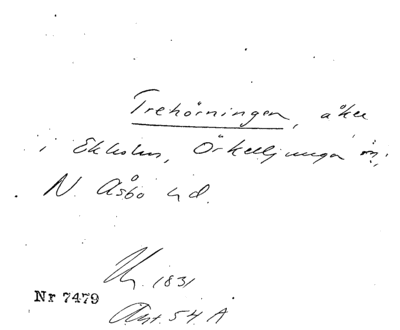 Trehörningen, åker
i Ekholm, Örkelljunga sn;
N. Åsbo hd.
Uh. 1831
Nr 7479
Ant. 54 A